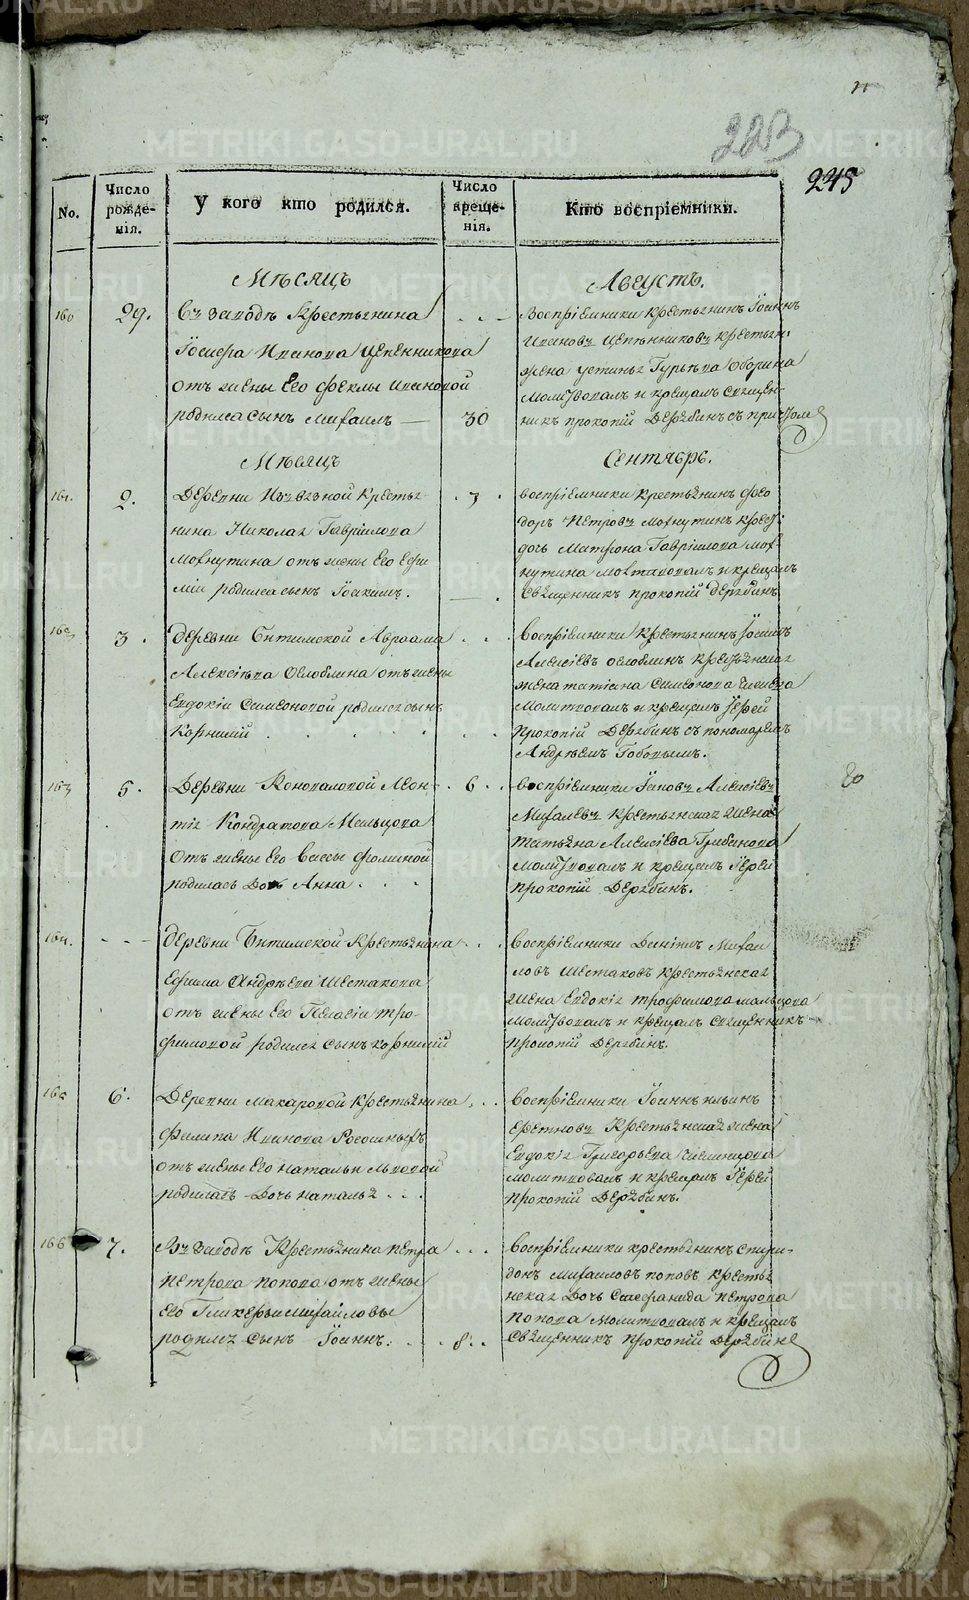 223
245
No.
Число рожде-нія.
У кого кто родился.
Число креще-нія.
Кто воспріемники.
Мѣсяцъ
Августъ.
160
29.
Въ заводѣ Крестьянина
Іосифа Иванова Цепенникова
отъ жены его Феклы Ивановой
родился сынъ Михаилъ
30
Воспріемники крестьянинъ Іоаннъ
Ивановъ Цепѣнниковъ крестьян.
жена устинья Гурьева
Молитвовалъ и крещалъ священ-
никъ прокопій Дерябинъ съ причтом
Мѣсяцъ
Сентябрь.
161.
2.
Деревни Извезной Крестья-
нина Николая Гавріилова
Махнутина отъ жены его Ефи
міи родился сынъ Іоакимъ.
3
воспріемники крестьянинъ Фео
доръ Петровъ Махнутинъ крест:
дочь Матрона Гавріилова мах
нутина молитвовалъ и крещалъ
Священникъ прокопій Дерябинъ
162
3.
деревни Битимской Авраама
Алексіева Оглоблина отъ жены
Евдокіи Симеоновой родился сынъ
Корнилій
воспріемники крестьянинъ Іосифъ
Алексіевъ оглоблинъ крестьянская
жена татіана Симеонова
Молитвовалъ и крещалъ Іерей
Прокопій Дерябинъ съ пономаремъ
Андрѣемъ Гобовымъ.
163
5.
Деревни Коноваловой Леон-
тія Кондратова Мальцова
отъ жены его Вассы фоминой
родилась Дочь Анна
6
воспріемники Іаковъ Алексіевъ
Михалевъ крестьянская жена
Татьяна Алексіева Грибанова
молитвовалъ и крещалъ Іерей
прокопій Дерябинъ.
164.
деревни Битимской Крестьянина
Ефима Андрѣева Шестакова
отъ жены его Пелагіи тро-
фимовой родился сынъ корнилій
воспріемники Михаи
ловъ Шестаковъ крестьянская
жена Евдокія трофимова мальцова
молитвовалъ и крещалъ священникъ
Прокопій Дерябинъ.
165
6.
Деревни макаровой крестьянина
Филипа Иванова Росошныхъ
отъ жены его натальи львовой
родилась Дочь наталья
воспріемники Іоаннъ ильинъ
Крестьянская жена
Евдокія Григорьева
молитвовалъ и крещалъ Іерей
Прокопій Дерябинъ.
166
7.
Въ заводѣ Крестьянина петра
петрова попова отъ жены
его Гликеріи михайловы
родился сынъ Іоаннъ.
8
воспріемники крестьянинъ спири-
донъ михаиловъ поповъ крестья
нская Дочь Стефанида петрова
попова молитвовалъ и крещалъ
Священникъ прокопій Дерябинъ